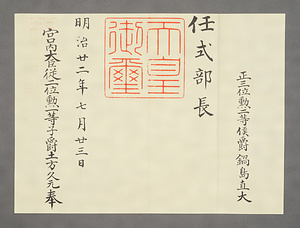 正三位勲二等侯爵鍋島直大
任式部長
天皇
御璽
明治廿二年七月廿三日
宮内大臣従二位勲一等子爵土方久元奉